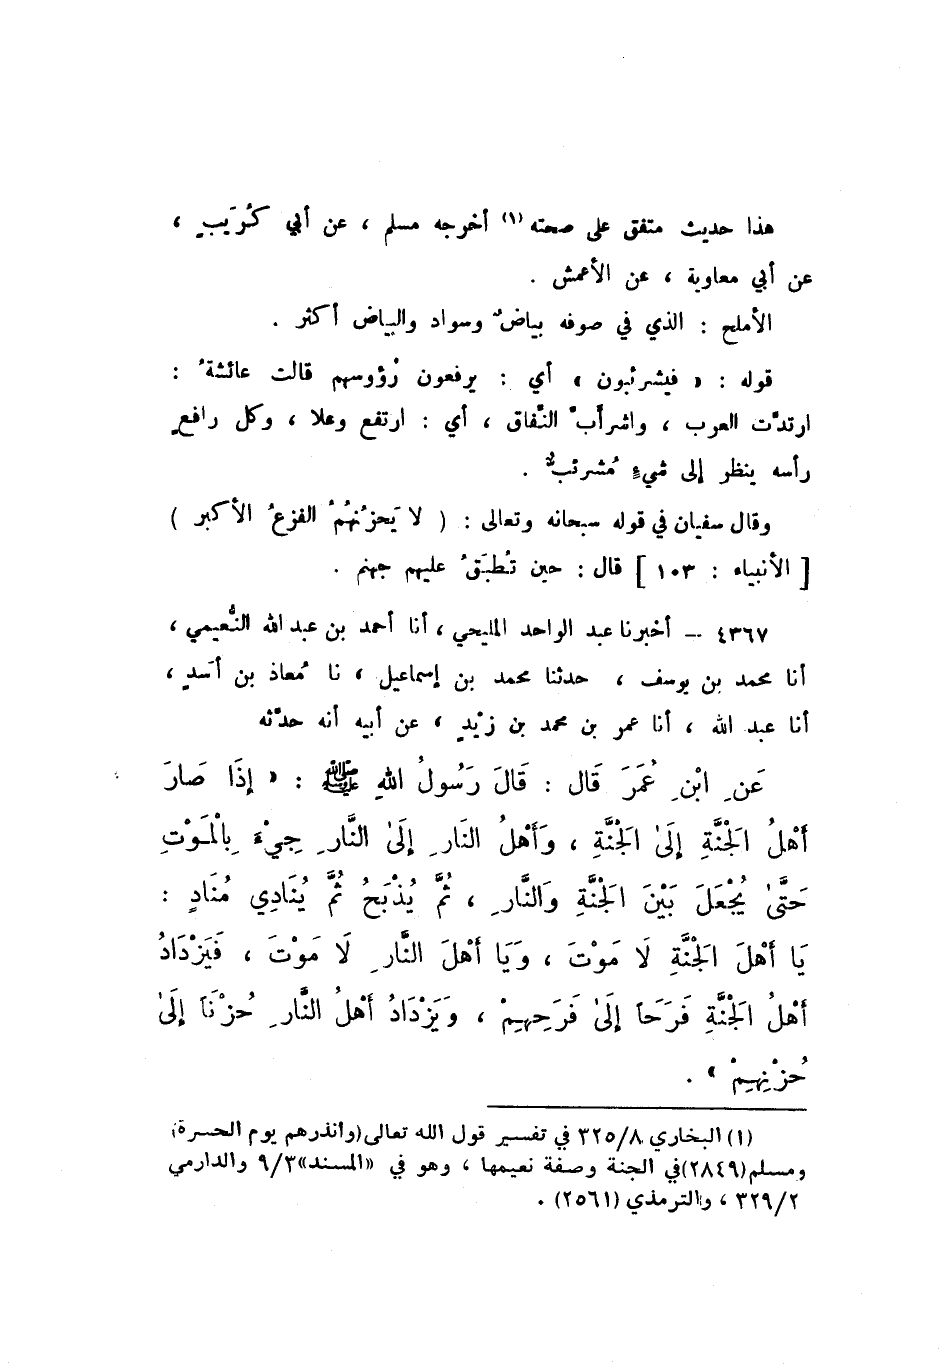 هذا حديث متفق على صحته (١) أخرجه مسلم ، عن أبي كُرَيبٍ ،
عن أبي معاوية ، عن الأعمش .
الأملح : الذي في صوفه بياضٌ وسواد والبياض أكثر .
قوله : « فيشرئبون » أي : يرفعون رُؤوسهم قالت عائشةُ :
ارتدَّت العرب ، واشرأَبَّ النِّفاق ، أي : ارتفع وعلا ، وكل رافعٍ
رأسه ينظر إلى شيءٍ مُشرئبٌّ .
وقال سفيان في قوله سبحانه وتعالى : ( لا يَحزُنُهُمُ الفزعُ الأكبر )
[ الأنبياء : ١٠٣ ] قال : حين تُطبَقُ عليهم جهنم .
٤٣٦٧ – أخبرنا عبد الواحد المليحي ، أنا أحمد بن عبد الله النُّعيمي ،
أنا محمد بن يوسف ، حدثنا محمد بن إسماعيل ، نا مُعاذ بن أَسَدٍ ،
أنا عبد الله ، أنا عمر بن محمد بن زيْدٍ ، عن أبيه أنه حدَّثه
عَنِ ابْنِ عُمَرَ قَال : قَالَ رَسُولُ اللهِ ﷺ : « إِذَا صَارَ
أَهْلُ الجَنَّةِ إِلَىٰ الجَنَّةِ ، وَأَهْلُ النَارِ إِلَىٰ النَّارِ جِيْءَ بِالْمَوْتِ
حَتَّىٰ يُجْعَلَ بَيْنَ الجَنَّةِ وَالنَّارِ ، ثُمَّ يُذْبَحُ ثُمَّ يُنَادِي مُنَادٍ :
يَا أَهْلَ الجَنَّةِ لَا مَوْتَ ، وَيَا أَهْلَ النَّارِ لَا مَوْتَ ، فَيَزْدَادُ
أَهْلُ الجَنَّةِ فَرَحَاً إِلَىٰ فَرَحِهِمْ ، وَيَزْدَادُ أَهْلُ النَّارِ حُزْنَاً إِلَىٰ
حُزْنِهِمْ » .
(١) البخاري ٣٢٥/٨ في تفسير قول الله تعالى (وانذرهم يوم الحسرة)
ومسلم (٢٨٤٩) في الجنة وصفة نعيمها ، وهو في «المسند» ٩/٣ والدارمي
٣٢٩/٢ ، والترمذي (٢٥٦١) .